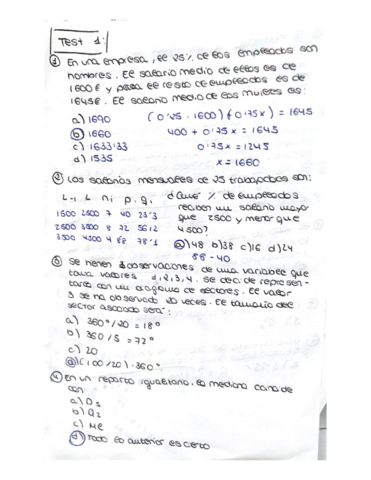 Test 1:
① En una empresa, el 25% de los empleados son
hombres. El salario medio de ellos es de
1600 € y para el resto de empleados es de
1645€. El salario medio de las mujeres es:
a) 1690 (0'25 · 1600) + 0'75x = 1645
b) 1660 400 + 0'75x = 1645
c) 1633'33 0'75x = 1245
d) 1535 x = 1660
② Los salarios mensuales de 25 trabajadores son:
Li-1 Li ni pi qi ¿Qué % de empleados
1500 2500 7 40 23'3 reciben un salario mayor
2500 3500 8 72 56'2 que 2500 y menor que
3500 4500 4 88 78'1 4500?
a) 48 b) 38 c) 16 d) 24
88 - 40
③ Se tienen observaciones de una variable que
toma valores 1, 2, 3, 4. Se decide represen-
tarla con un diagrama de sectores. El valor
3 se ha observado 20 veces. El tamaño del
sector asociado será:
a) 360°/20 = 18°
b) 360/5 = 72°
c) 20
d) (100/20) · 360°
④ En un reparto igualitario, la mediana coincide
con
a) D5
b) Q2
c) Me
d) Todo lo anterior es cierto